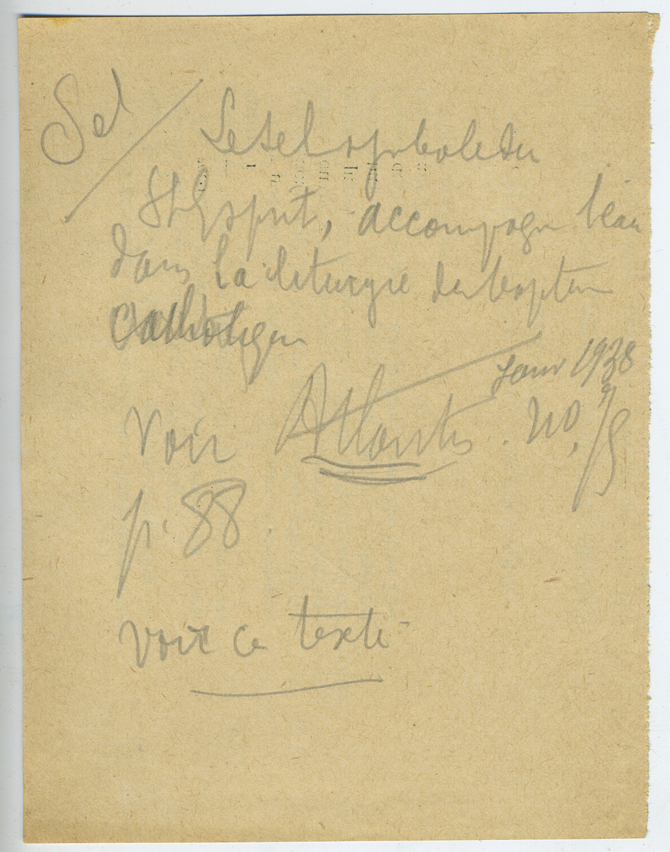 Sel / Le sel symbole du
St Esprit, accompagne l'eau
dans la liturgie du baptême
Catholique
Janv 1938
Voir Atlantis. no.
p. 88.
voir ce texte